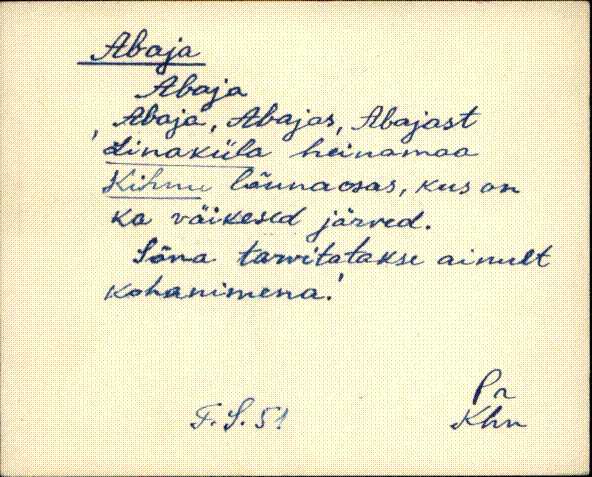 Abaja
Abaja
Abaja, Abajas, Abajast
'Linaküla heinamaa
Kihnu lõunaosas, kus on
ka väikesed järved.
Sõna tarvitatakse ainult
kohanimena.'
Pä
F. S. 51 Khn